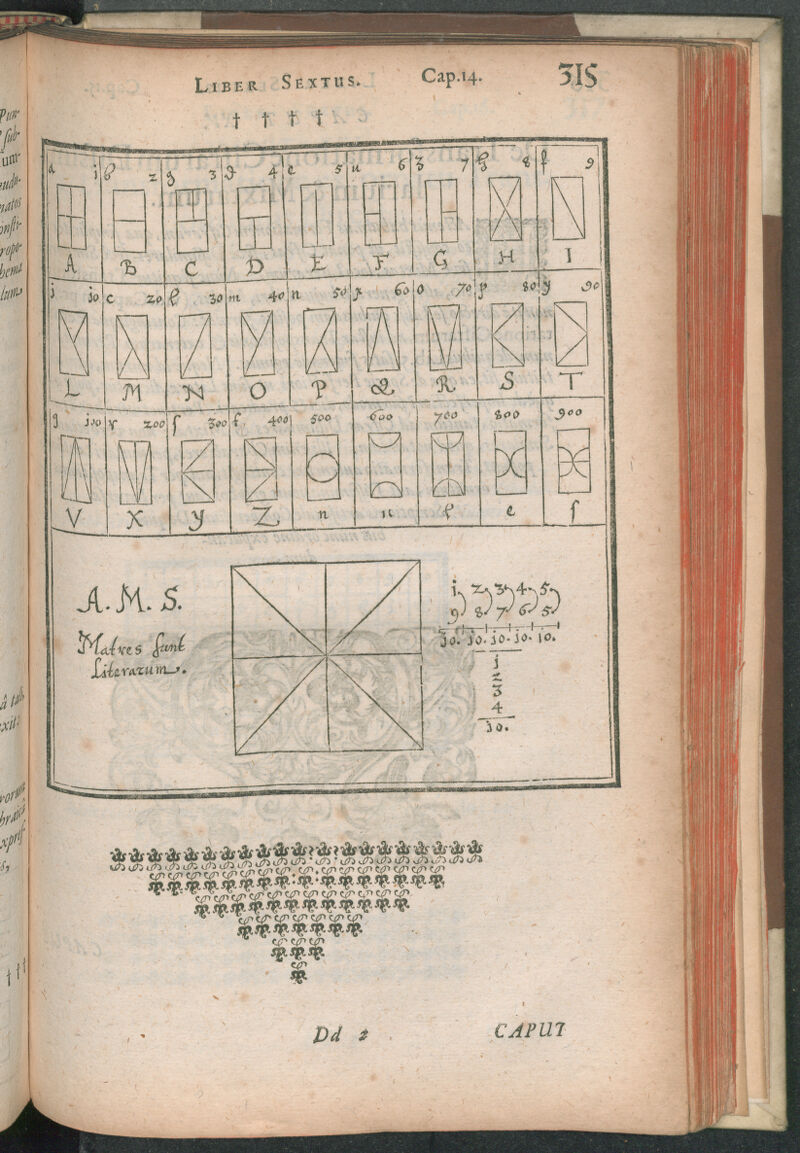 LIBER SEXTUS. Cap.14. 315
† † † †
a j b 2 g 3 d 4 e 5 u 6 z 7 h 8 f 9
A B C D E F G H I
j jo c 20 l 30 m 40 n 50 x 60 o 70 p 80 y 90
L M N O P Q R S T
q joo r 200 ſ 300 t 400 500 600 700 800 900
V X Y Z n u l e ſ
A. M. S.
Matres sunt
Literarum.
j 2 3 4 5
9. 8. 7. 6. 5.
jo. jo. jo. jo. jo.
j
2
3
4
jo.
Dd 2 CAPUT